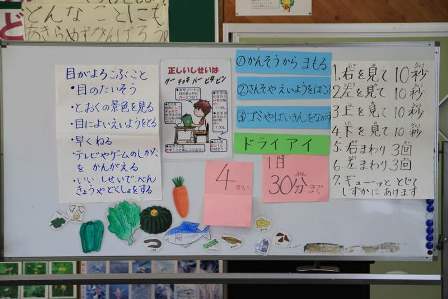 どんなことにも
あきらめずがんばろう
目がよろこぶこと
・目のたいそう
・とおくの景色を見る
・目によいえいようをとる
・早くねる
・テレビやゲームのしかたを
かんがえる
・いいしせいでべん
きょうやどくしょをする
正しいしせいは
グー チョキ パー ピタ ピン
①かんそうから まもる
②さんそやえいようをはこぶ
③ゴミやばいきんをながす
ドライアイ
4
1日
30分まで
1. 右を見て 10秒
2. 左を見て 10秒
3. 上を見て 10秒
4. 下を見て 10秒
5. 右まわり 3回
6. 左まわり 3回
7. ギューッととじて
しずかにあけます